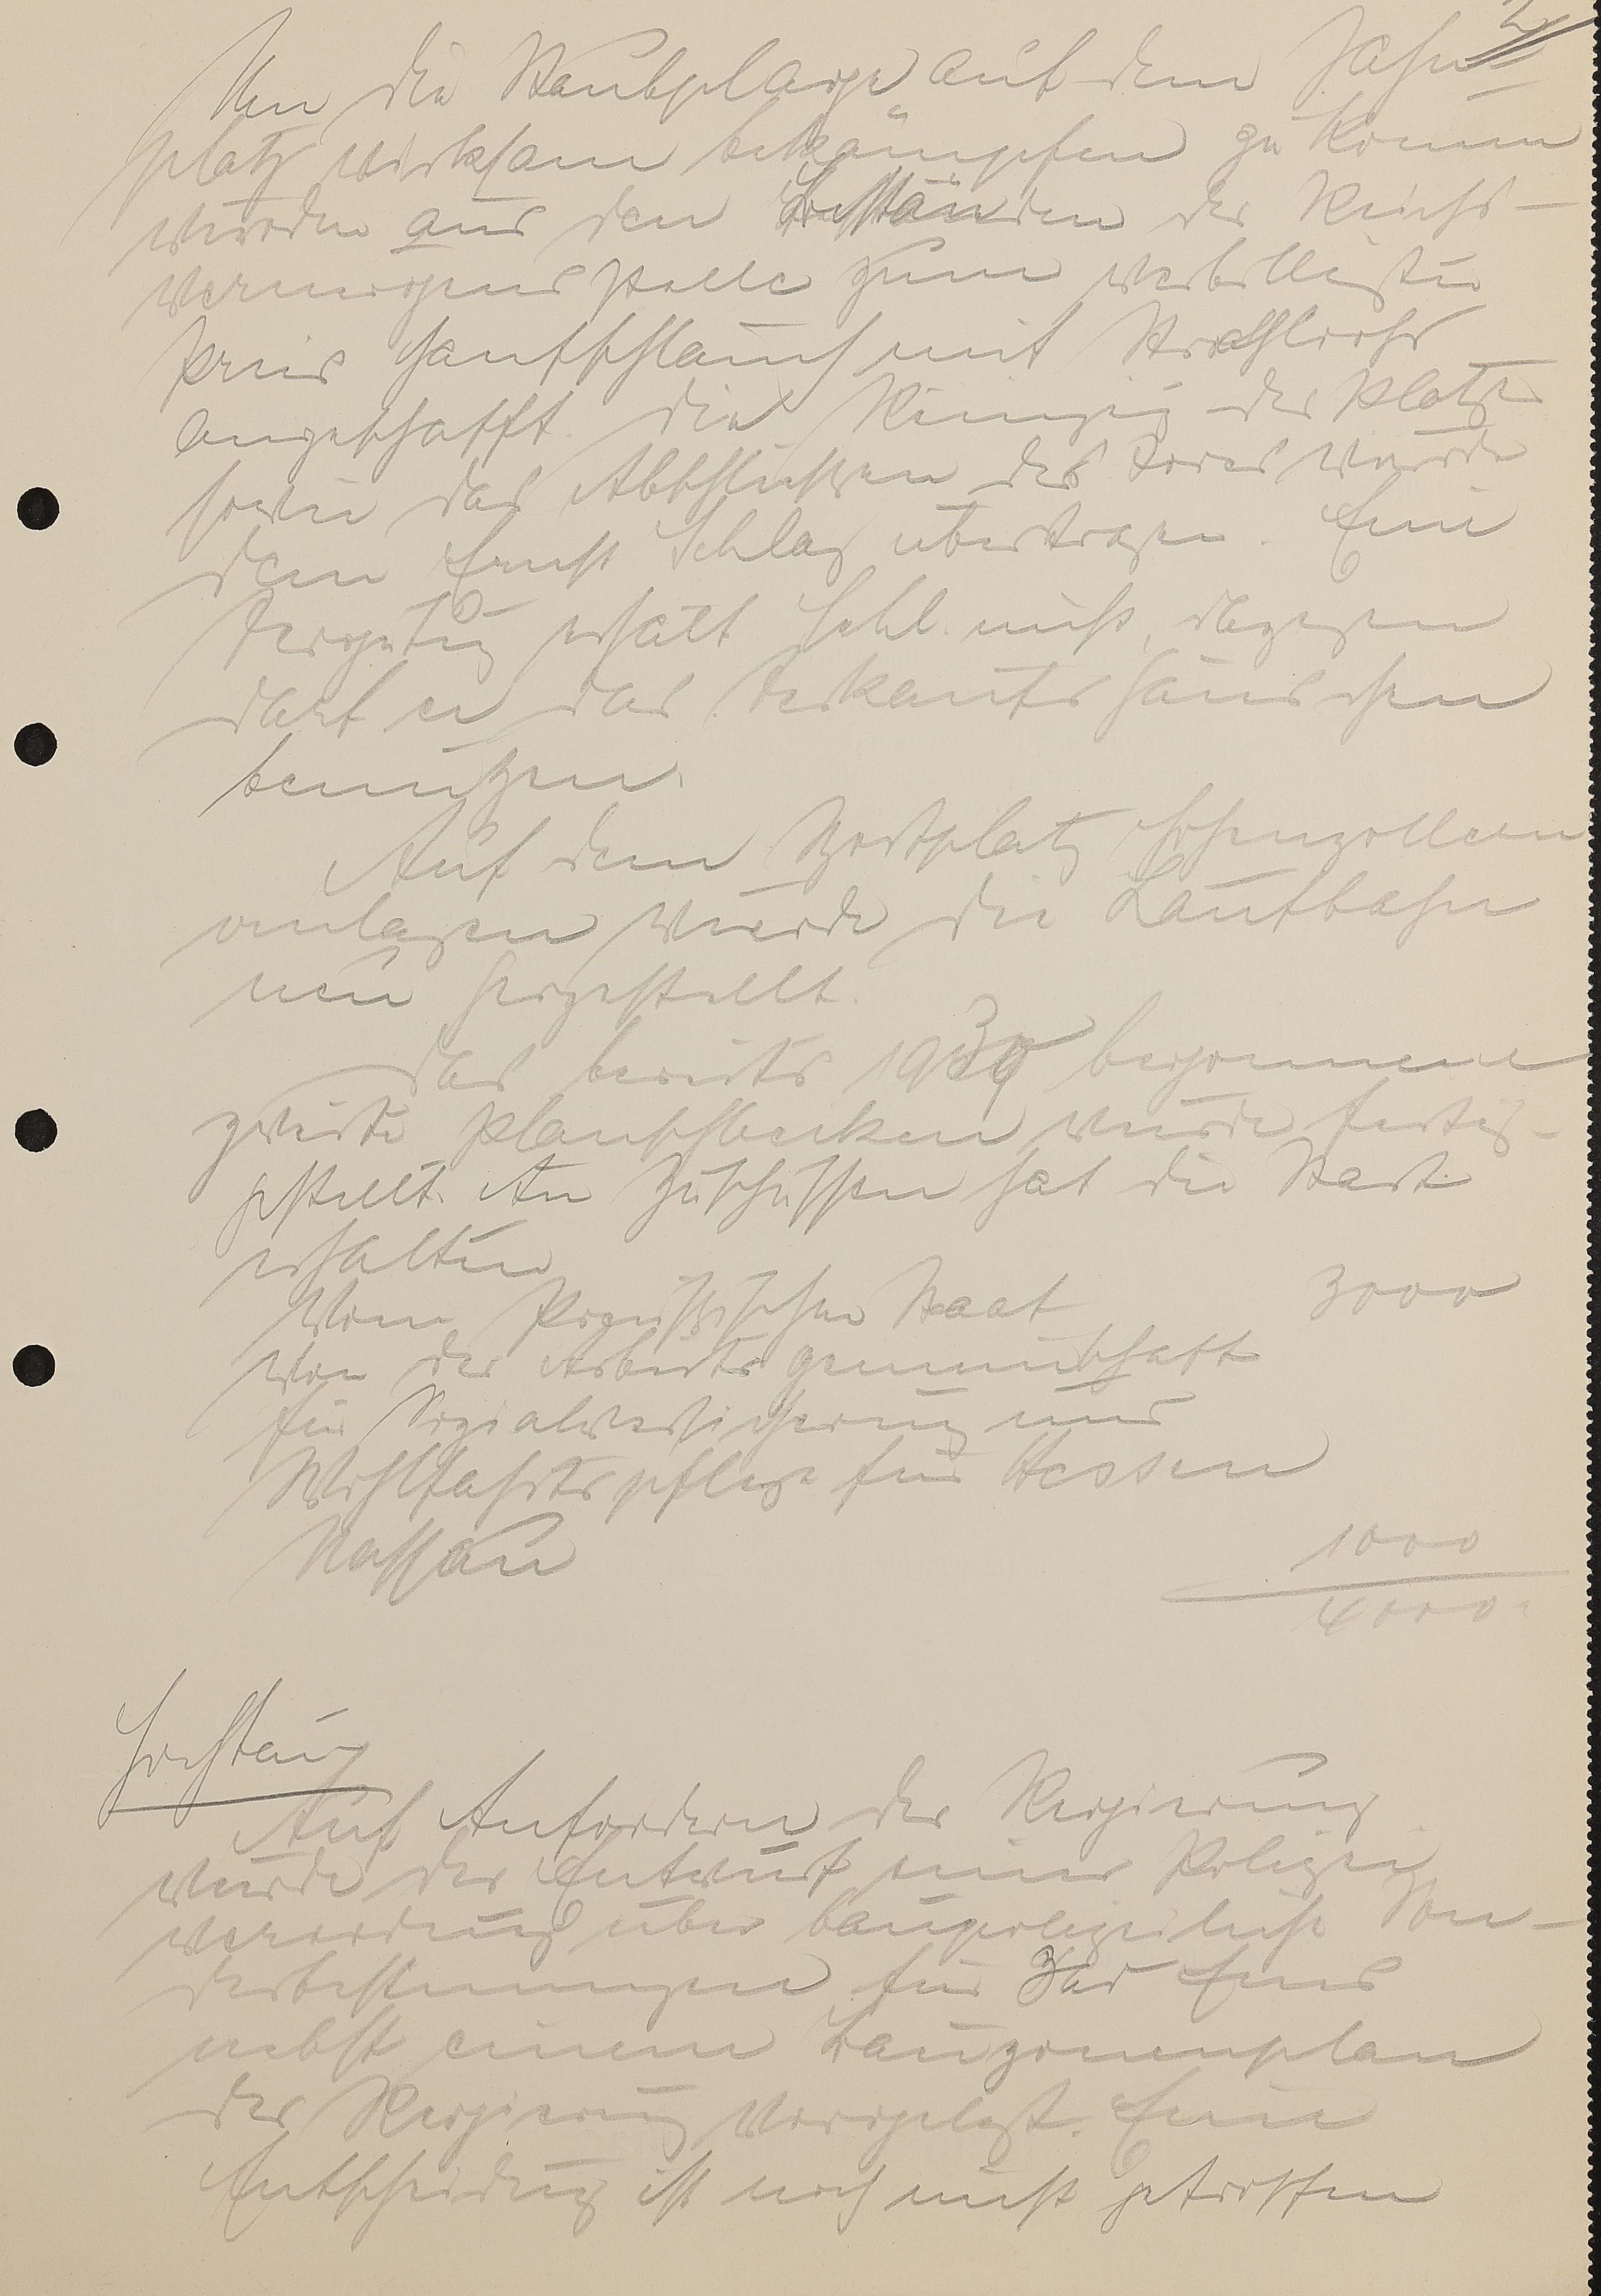 2
Um die Staubplage auf dem Jahn-
platz wirksam bekämpfen zu können
wurden aus den Beständen der Reichs-
vermögensstelle zum verbilligten
Preis Hanfschlauch mit Strahlrohr
angeschafft. Die Reinigung des Platzes
sowie das Abschließen des Tores wurde
dem Ernst Schlag übertragen. Eine
Vergütung erhält Schl. nicht, dagegen
darf er das Verkaufshäuschen
benutzen.
Auf dem Sportplatz Hohenzollern
anlagen wurde die Laufbahn
neu hergestellt.
Das bereits 1939 begonnene
zweite Planschbecken wurde fertig-
gestellt. An Zuschüssen hat die Stadt
erhalten
Vom Preußischen Staat 3000
Von der Arbeitsgemeinschaft
für Sozialversicherung und
Wohlfahrtspflege für Hessen
Nassau
1000
4000.
Hochbau
Auf Anfordern der Regierung
wurde der Entwurf einer Polizei
verordnung über baupolizeiliche Son-
derbestimmungen für Bad Ems
nebst einem Bauzonenplan
der Regierung vorgelegt. Eine
Entscheidung ist noch nicht getroffen